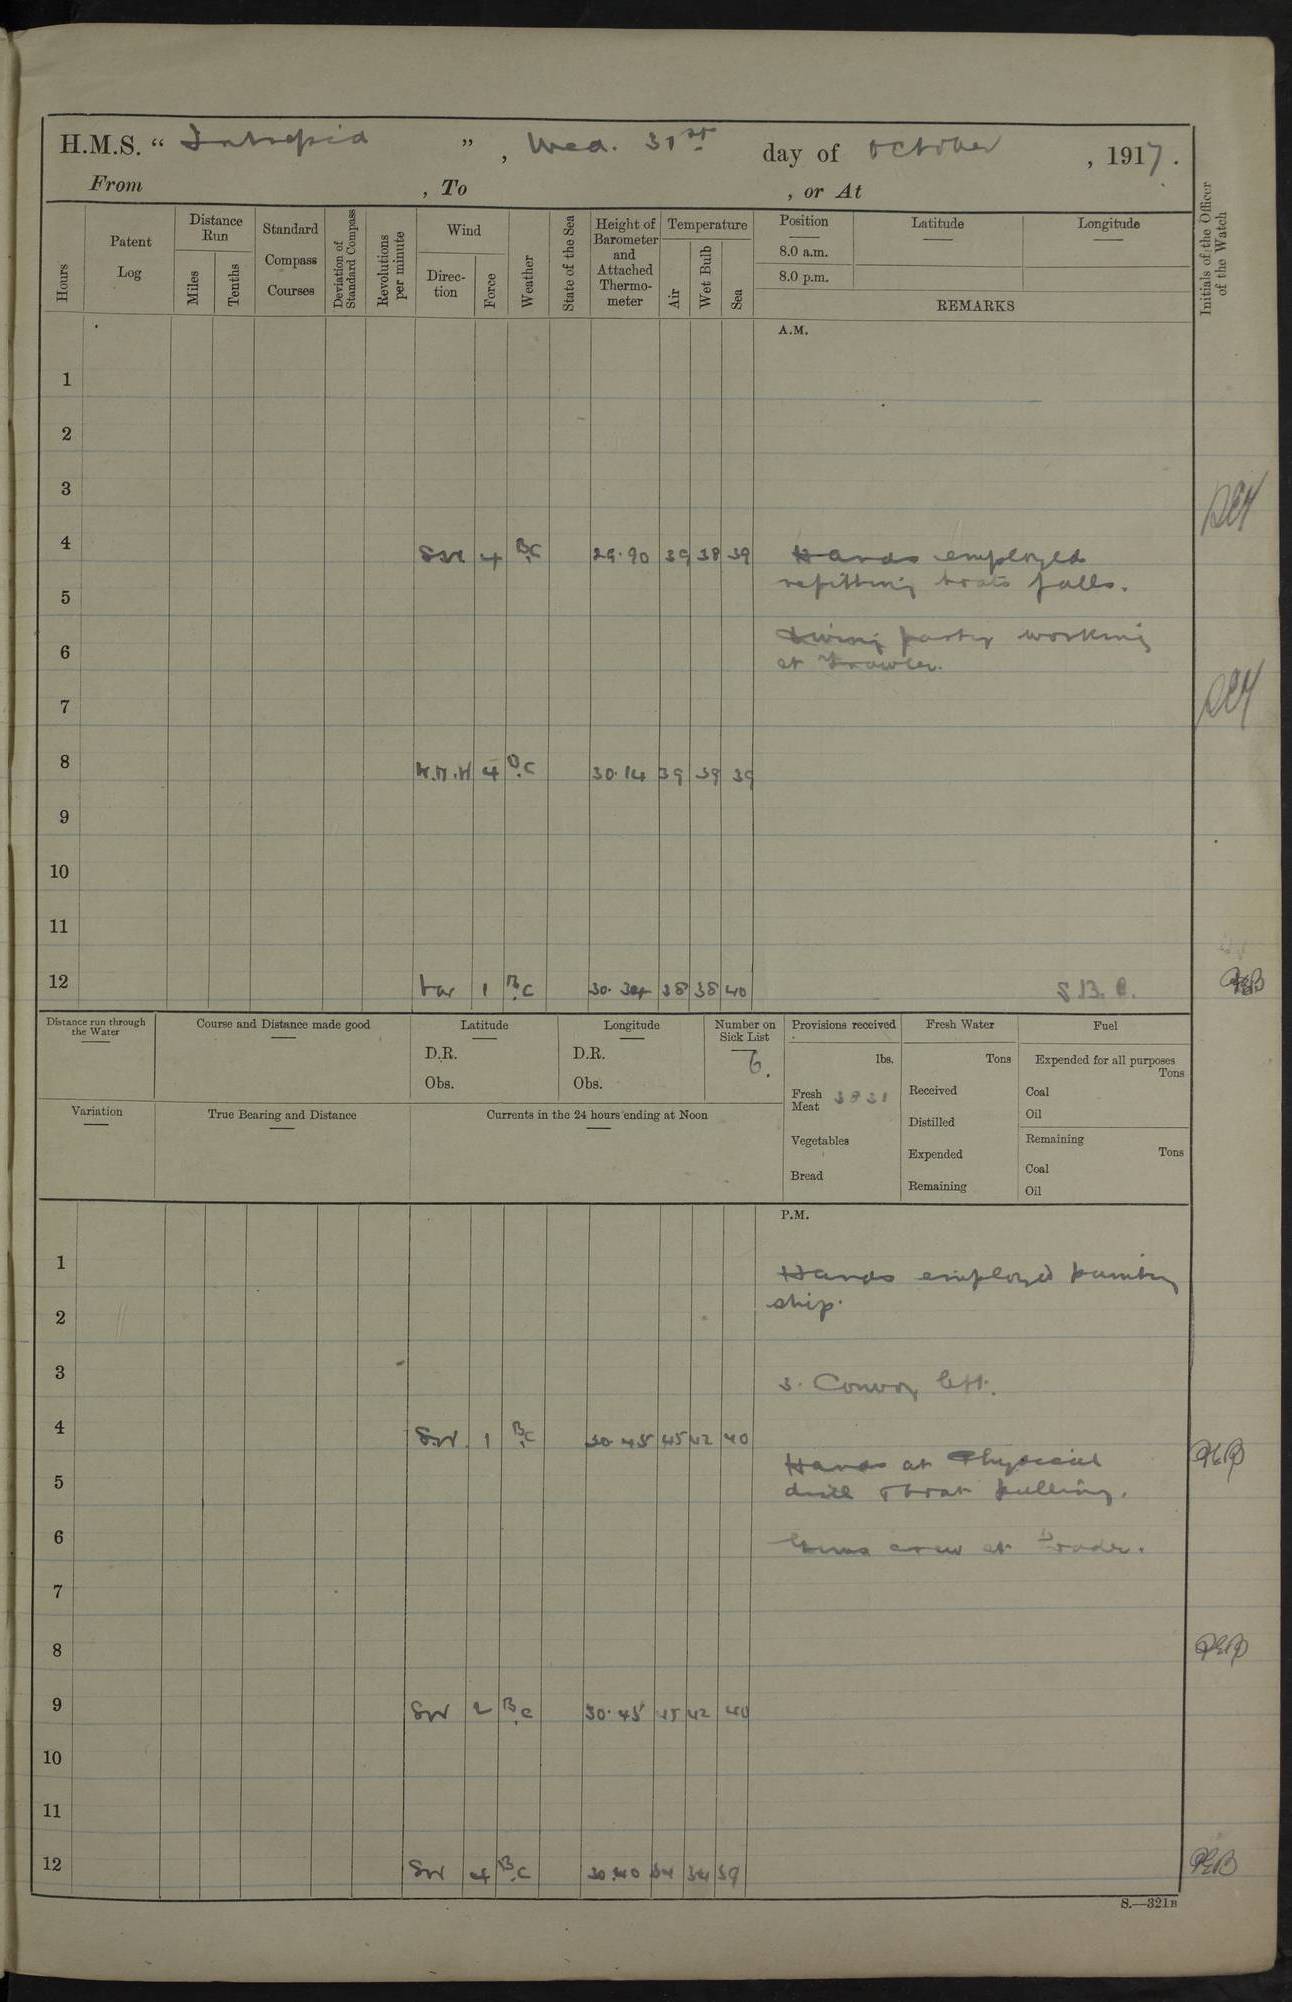 H.M.S. “ Intrepid ” , Wed. 31st day of October , 1917.
From , To , or At
Hours
Patent Log
Distance Run
Miles
Tenths
Standard Compass Courses
Deviation of Standard Compass
Revolutions per minute
Wind
Direction
Force
Weather
State of the Sea
Height of Barometer and Attached Thermometer
Temperature
Air
Wet Bulb
Sea
Position
8.0 a.m.
8.0 p.m.
Latitude
Longitude
REMARKS
Initials of the Officer of the Watch
A.M.
1
2
3
4 SW 4 B.C 29.90 39 38 39 Hands employed
refitting boats falls.
5
6 Diving party working
at Trawler.
7
8 4 O.C 30.14 39 39 39
9
10
11
12 Var 1 B.C 30.34 38 38 40
Distance run through the Water
Course and Distance made good
Latitude
D.R.
Obs.
Longitude
D.R.
Obs.
Number on Sick List
6.
Provisions received
lbs.
Fresh Meat 3831
Vegetables
Bread
Fresh Water
Tons
Received
Distilled
Expended
Remaining
Fuel
Expended for all purposes
Tons
Coal
Oil
Remaining
Tons
Coal
Oil
Variation
True Bearing and Distance
Currents in the 24 hours ending at Noon
P.M.
1 Hands employed
ship.
2
3 3. Convoy left.
4 SW. 1 B.C 30.45 45 42 40
Hands at Physical
5 drill & boat pulling.
6 Guns crew at
7
8
9 SW 2 B.C 30.45 45 42 40
10
11
12 SW 4 B.C 30.40 34 34 39
S.—321B